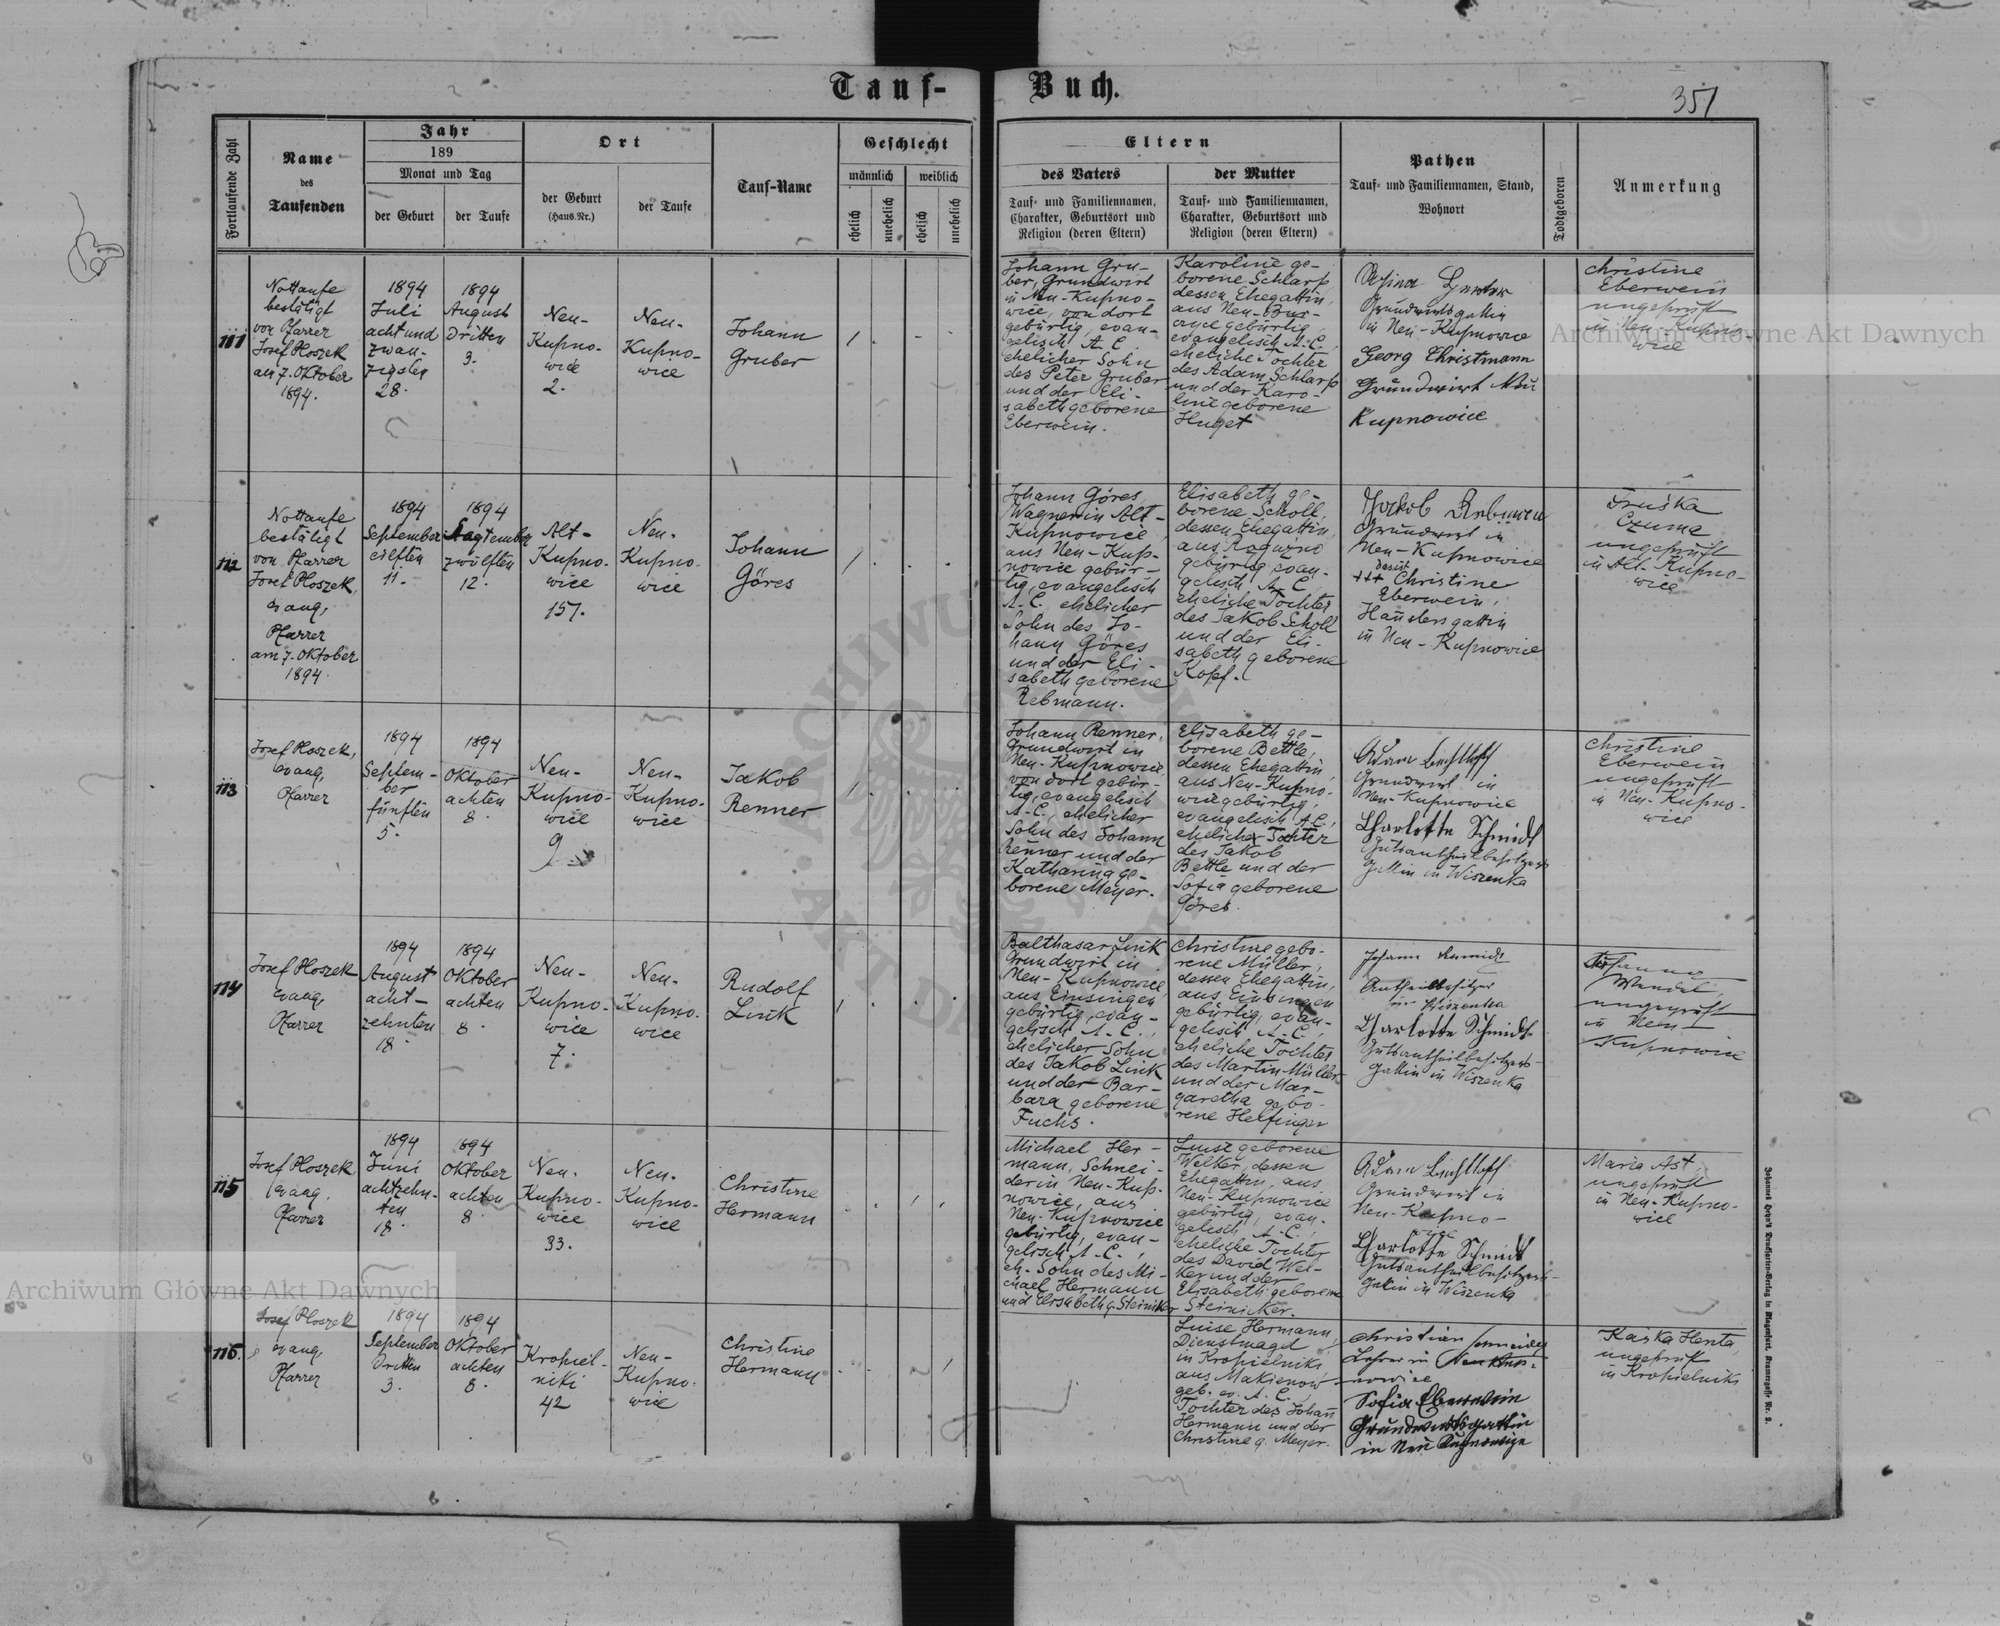 Tauf-
Buch.
351
Fortlaufende Zahl
Name
des
Taufenden
Jahr
189
Monat und Tag
der Geburt
der Taufe
Ort
der Geburt
(Haus-Nr.)
der Taufe
Tauf-Name
Geschlecht
männlich
weiblich
ehelich
unehelich
ehelich
unehelich
Eltern
des Vaters
Tauf- und Familiennamen,
Charakter, Geburtsort und
Religion (deren Eltern)
der Mutter
Tauf- und Familiennamen,
Charakter, Geburtsort und
Religion (deren Eltern)
Pathen
Tauf- und Familiennamen, Stand,
Wohnort
Todtgeboren
Anmerkung
111
Nottaufe
bestätigt
von Pfarrer
Josef Ploszek
am 7. Oktober
1894.
1894
Juli
acht und
zwan-
zigsten
28.
1894
August
dritten
3.
Neu-
Kupno-
wice
2.
Neu-
Kupno-
wice
Johann
Gruber
1
Johann Gru-
ber, Grundwirt
in Neu-Kupno-
wice, von dort
gebürtig, evan-
gelisch A. C.
ehelicher Sohn
des Peter Gruber
und der Eli-
sabeth geborene
Eberwein.
Karoline ge-
borene Schlarp,
dessen Ehegattin,
aus Neu-Bur-
czyce gebürtig,
evangelisch A. C.,
eheliche Tochter
des Adam Schlarp
und der Karo-
line geborene
Huget
Grundwirtsgattin
in Neu-Kupnowice
Georg Christmann
Grundwirt Neu
Kupnowice
Christine
Eberwein
ungeprüft
in Neu-Kupno-
wice
112
Nottaufe
bestätigt
von Pfarrer
Josef Ploszek,
evang.
Pfarrer
am 7. Oktober
1894.
1894
September
eilften
11.
1894
September
zwölften
12.
Alt-
Kupno-
wice
157.
Neu-
Kupno-
wice
Johann
Göres
1
Johann Göres,
Wagner in Alt-
Kupnowice,
aus Neu-Kup-
nowice gebür-
tig, evangelisch
A. C. ehelicher
Sohn des Jo-
hann Göres
und der Eli-
sabeth geborene
Rebmann.
Elisabeth ge-
borene Scholl,
dessen Ehegattin,
aus Rogurno
gebürtig, evan-
gelisch A. C.
eheliche Tochter
des Jakob Scholl
und der Eli-
sabeth geborene
Kopf.
Jackob Rebmann
Grundwirt in
Neu-Kupnowice
+++ Christine
Eberwein,
Häuslersgattin
in Neu-Kupnowice
Fruśka
Czuma
ungeprüft
in Alt-Kupno-
wice
113
Josef Ploszek,
evang.
Pfarrer
1894
Septem-
ber
fünften
5.
1894
Oktober
achten
8.
Neu-
Kupno-
wice
9
Neu-
Kupno-
wice
Jakob
Renner
1
Johann Renner,
Grundwirt in
Neu-Kupnowice,
von dort gebür-
tig, evangelisch
A. C., ehelicher
Sohn des Johann
Renner und der
Katharina ge-
borene Meyer.
Elisabeth ge-
borene Bettle,
dessen Ehegattin,
aus Neu-Kupno-
wice gebürtig,
evangelisch A. C.,
eheliche Tochter
des Jakob
Bettle und der
Sofia geborene
Göres.
Adam Bechtloff
Grundwirt in
Neu-Kupnowice
Charlotte Schmidt
Gutsantheilbesitzers
gattin in Wiszenka
Christine
Eberwein
ungeprüft
in Neu-Kupno-
wice
114
Josef Ploszek
evang.
Pfarrer
1894
August
acht-
zehnten
18.
1894
Oktober
achten
8.
Neu-
Kupno-
wice
7.
Neu-
Kupno-
wice
Rudolf
Link
1
Balthasar Link
Grundwirt in
Neu-Kupnowice,
aus Einsingen
gebürtig, evan-
gelisch A. C.,
ehelicher Sohn
des Jakob Link
und der Bar-
bara geborene
Fuchs.
Christine gebo-
rene Müller,
dessen Ehegattin,
aus Einsingen
gebürtig, evan-
gelisch A. C.
eheliche Tochter
des Martin Müller
und der Mar-
garetha gebo-
rene Helfinger
Johann Schmidt
Antheilbesitzer
in Wiszenka
Charlotte Schmidt
Gutsantheilbesitzers-
gattin in Wiszenka
Wendel,
ungeprüft
in Neu-
Kupnowice
115
Josef Ploszek
evang.
Pfarrer
1894
Juni
achtzehn-
ten
18.
1894
Oktober
achten
8.
Neu-
Kupno-
wice
33.
Neu-
Kupno-
wice
Christine
Hermann
1
Michael Her-
mann, Schnei-
der in Neu-Kup-
nowice, aus
Neu-Kupnowice
gebürtig, evan-
gelisch A. C.,
eh. Sohn des Mi-
chael Hermann
und Elisabeth g. Steiniker
Luise geborene
Welker, dessen
Ehegattin, aus
Neu-Kupnowice
gebürtig, evan-
gelisch A. C.,
eheliche Tochter
des David Wel-
ker und der
Elisabeth geborene
Steinicker.
Adam Bechtloff
Grundwirt in
Neu-Kupno-
wice
Charlotte Schmidt
Gutsantheilbesitzers-
gattin in Wiszenka
Maria Ast,
ungeprüft
in Neu-Kupno-
wice
116.
Josef Ploszek
evang.
Pfarrer
1894
September
dritten
3.
1894
Oktober
achten
8.
Kropiel-
niki
42
Neu-
Kupno-
wice
Christine
Hermann
1
Luise Hermann,
Dienstmagd
in Kropielniki
aus Makienow
geb. ev. A. C.,
Tochter des Johann
Hermann und der
Christine g. Meyer.
Christian Schneider
Lehrer in Neu Kup-
nowice
Sofia Eberwein
Grundwirtsgattin
in Neu Kupnowice
Kaśka Henta,
ungeprüft
in Kropielniki
Johannes Heyn's Drucksorten-Verlag in Klagenfurt, Kramergasse Nr. 2.
Archiwum Główne Akt Dawnych
Archiwum Główne Akt Dawnych